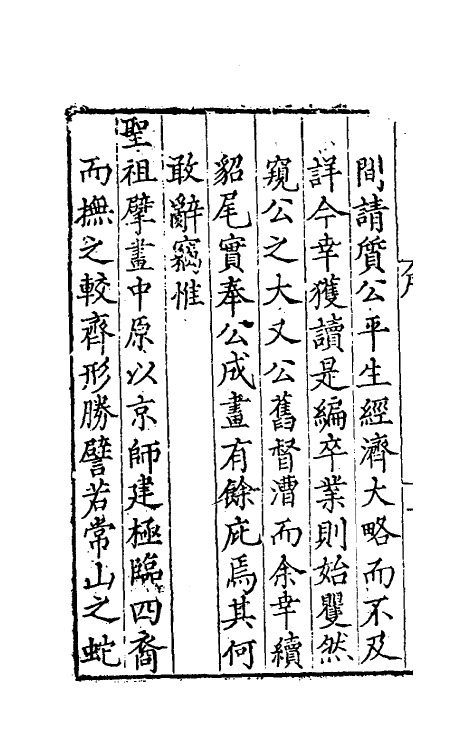 間請質公平生經濟大略而不及
詳今幸獲讀是編卒業則始矍然
窺公之大又公舊督漕而余幸續
貂尾實奉公成畫有餘庇焉其何
敢辭竊惟
聖祖擘畫中原以京師建極臨四裔
而撫之較齊形勝譬若常山之蛇